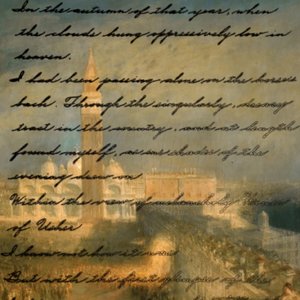 In the autumn of that year, when
the clouds hung oppressively low in
heaven.
I had been passing alone on the horse
back. Through the singularly, dreary
tract in the country, and at length
found myself, as shades of the
evening drew on
Within the view of melancholy House
of Usher
I know not how it was
But with the first glimpse of the